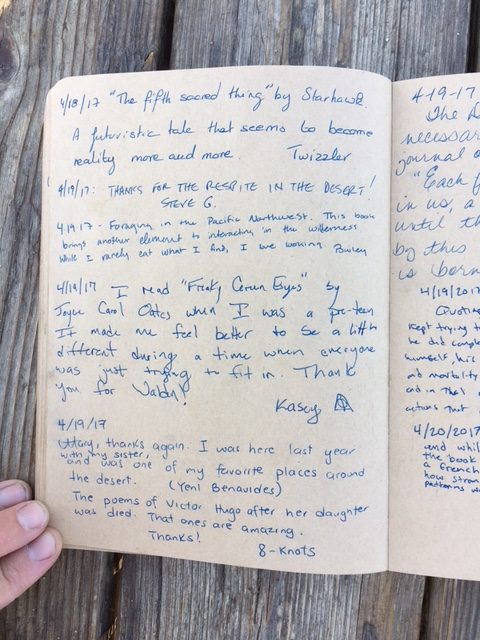 4/18/17 "The fifth sacred thing" by Starhawk.
A futuristic tale that seems to become
reality more and more. Twizzler
4/19/17: THANKS FOR THE RESPITE IN THE DESERT!
STEVE G.
4.19.17 - Foraging in the Pacific Northwest. This book
brings another element to interacting in the wilderness
While I rarely eat what I find, I love looking.
4/19/17 I read "Freaky Green Eyes" by
Joyce Carol Oates when I was a pre-teen
It made me feel better to be a little
different during a time when everyone
was just trying to fit in. Thank
you for
Kasey
4/19/17
Mary, thanks again. I was here last year
with my sister,
and was one of my favorite places around
the desert. (Yeni Benavides)
The poems of Victor Hugo after her daughter
was died. That ones are amazing.
Thanks!
8-Knots
4-19-17
The
journal
"Each
in us, a
until th
by this
is born
4/19/2017
Quoting
kept trying t
he did
himself, his
and morbidity
and in that
actions that
4/20/2017
and whil
the book
a french
how stron